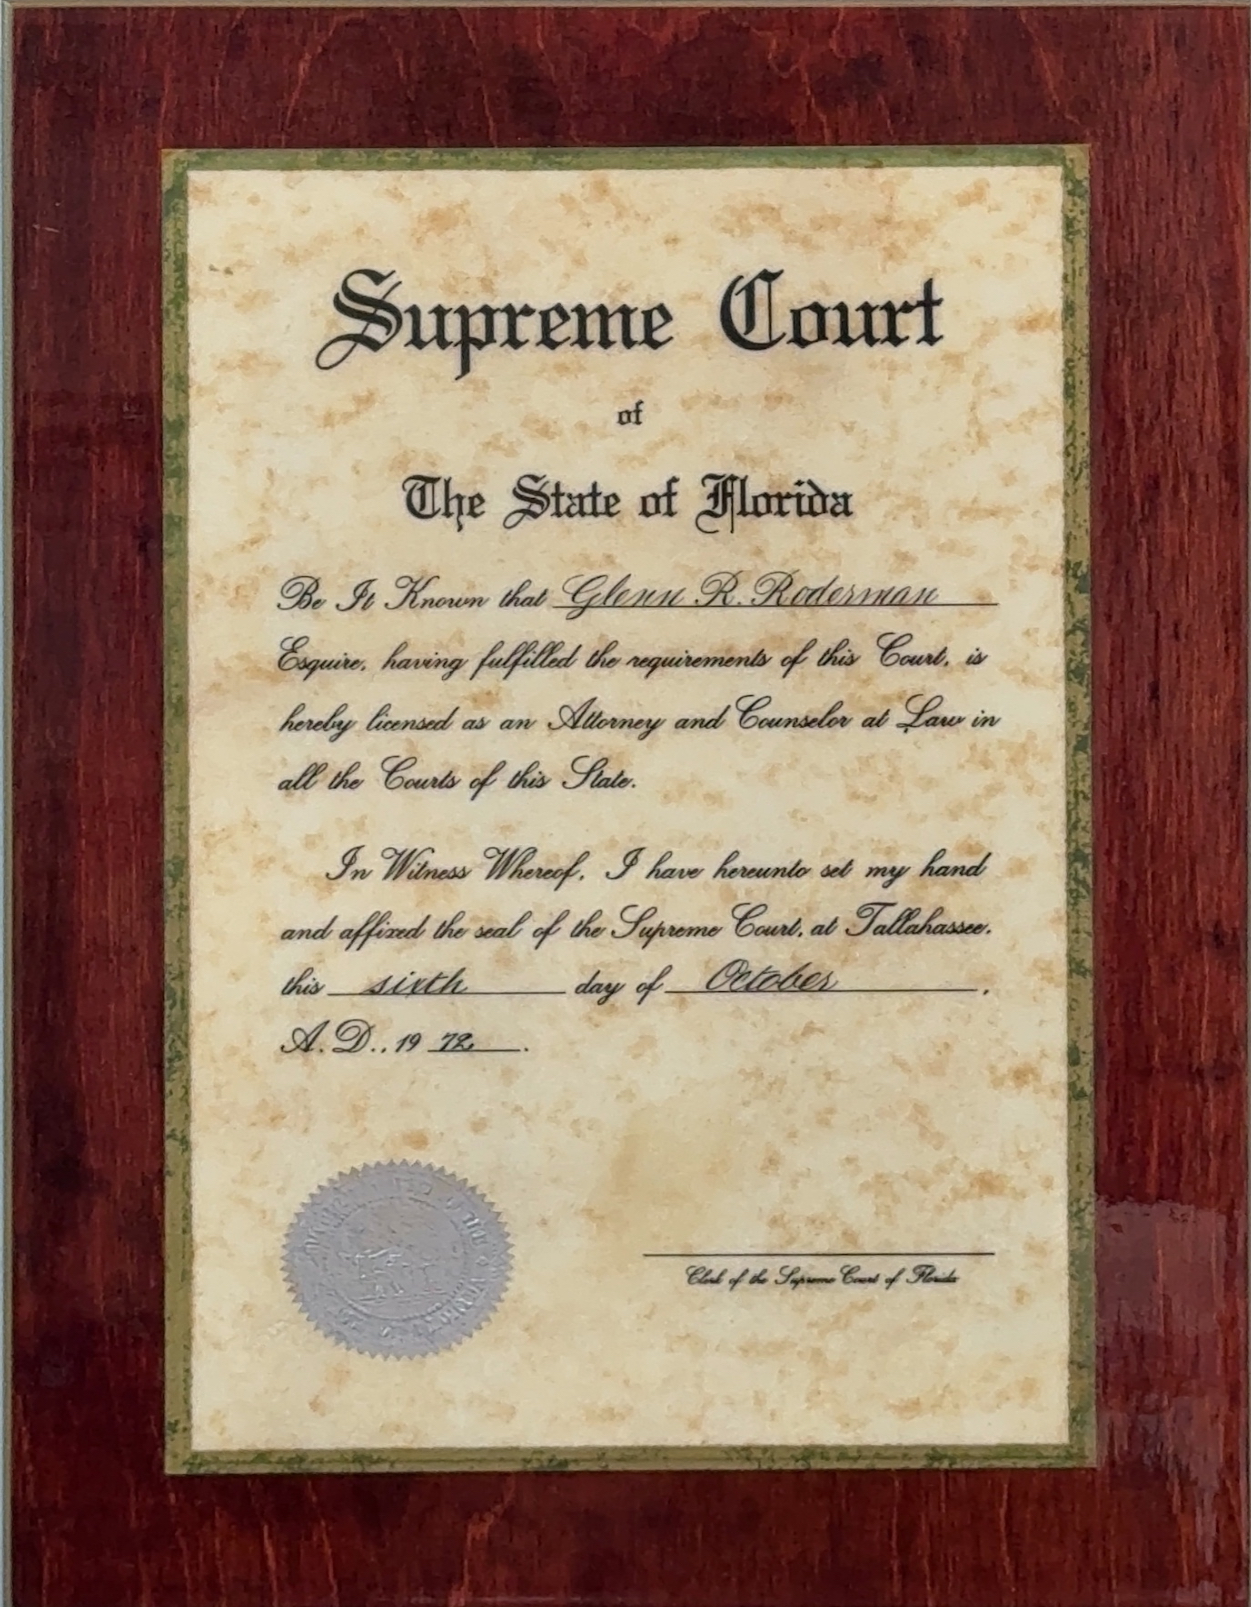 Supreme Court
of
The State of Florida
Be It Known that Glenn R. Roderman
Esquire, having fulfilled the requirements of this Court, is
hereby licensed as an Attorney and Counselor at Law in
all the Courts of this State.
In Witness Whereof, I have hereunto set my hand
and affixed the seal of the Supreme Court, at Tallahassee,
this sixth day of October,
A. D., 19 72.
Clerk of the Supreme Court of Florida